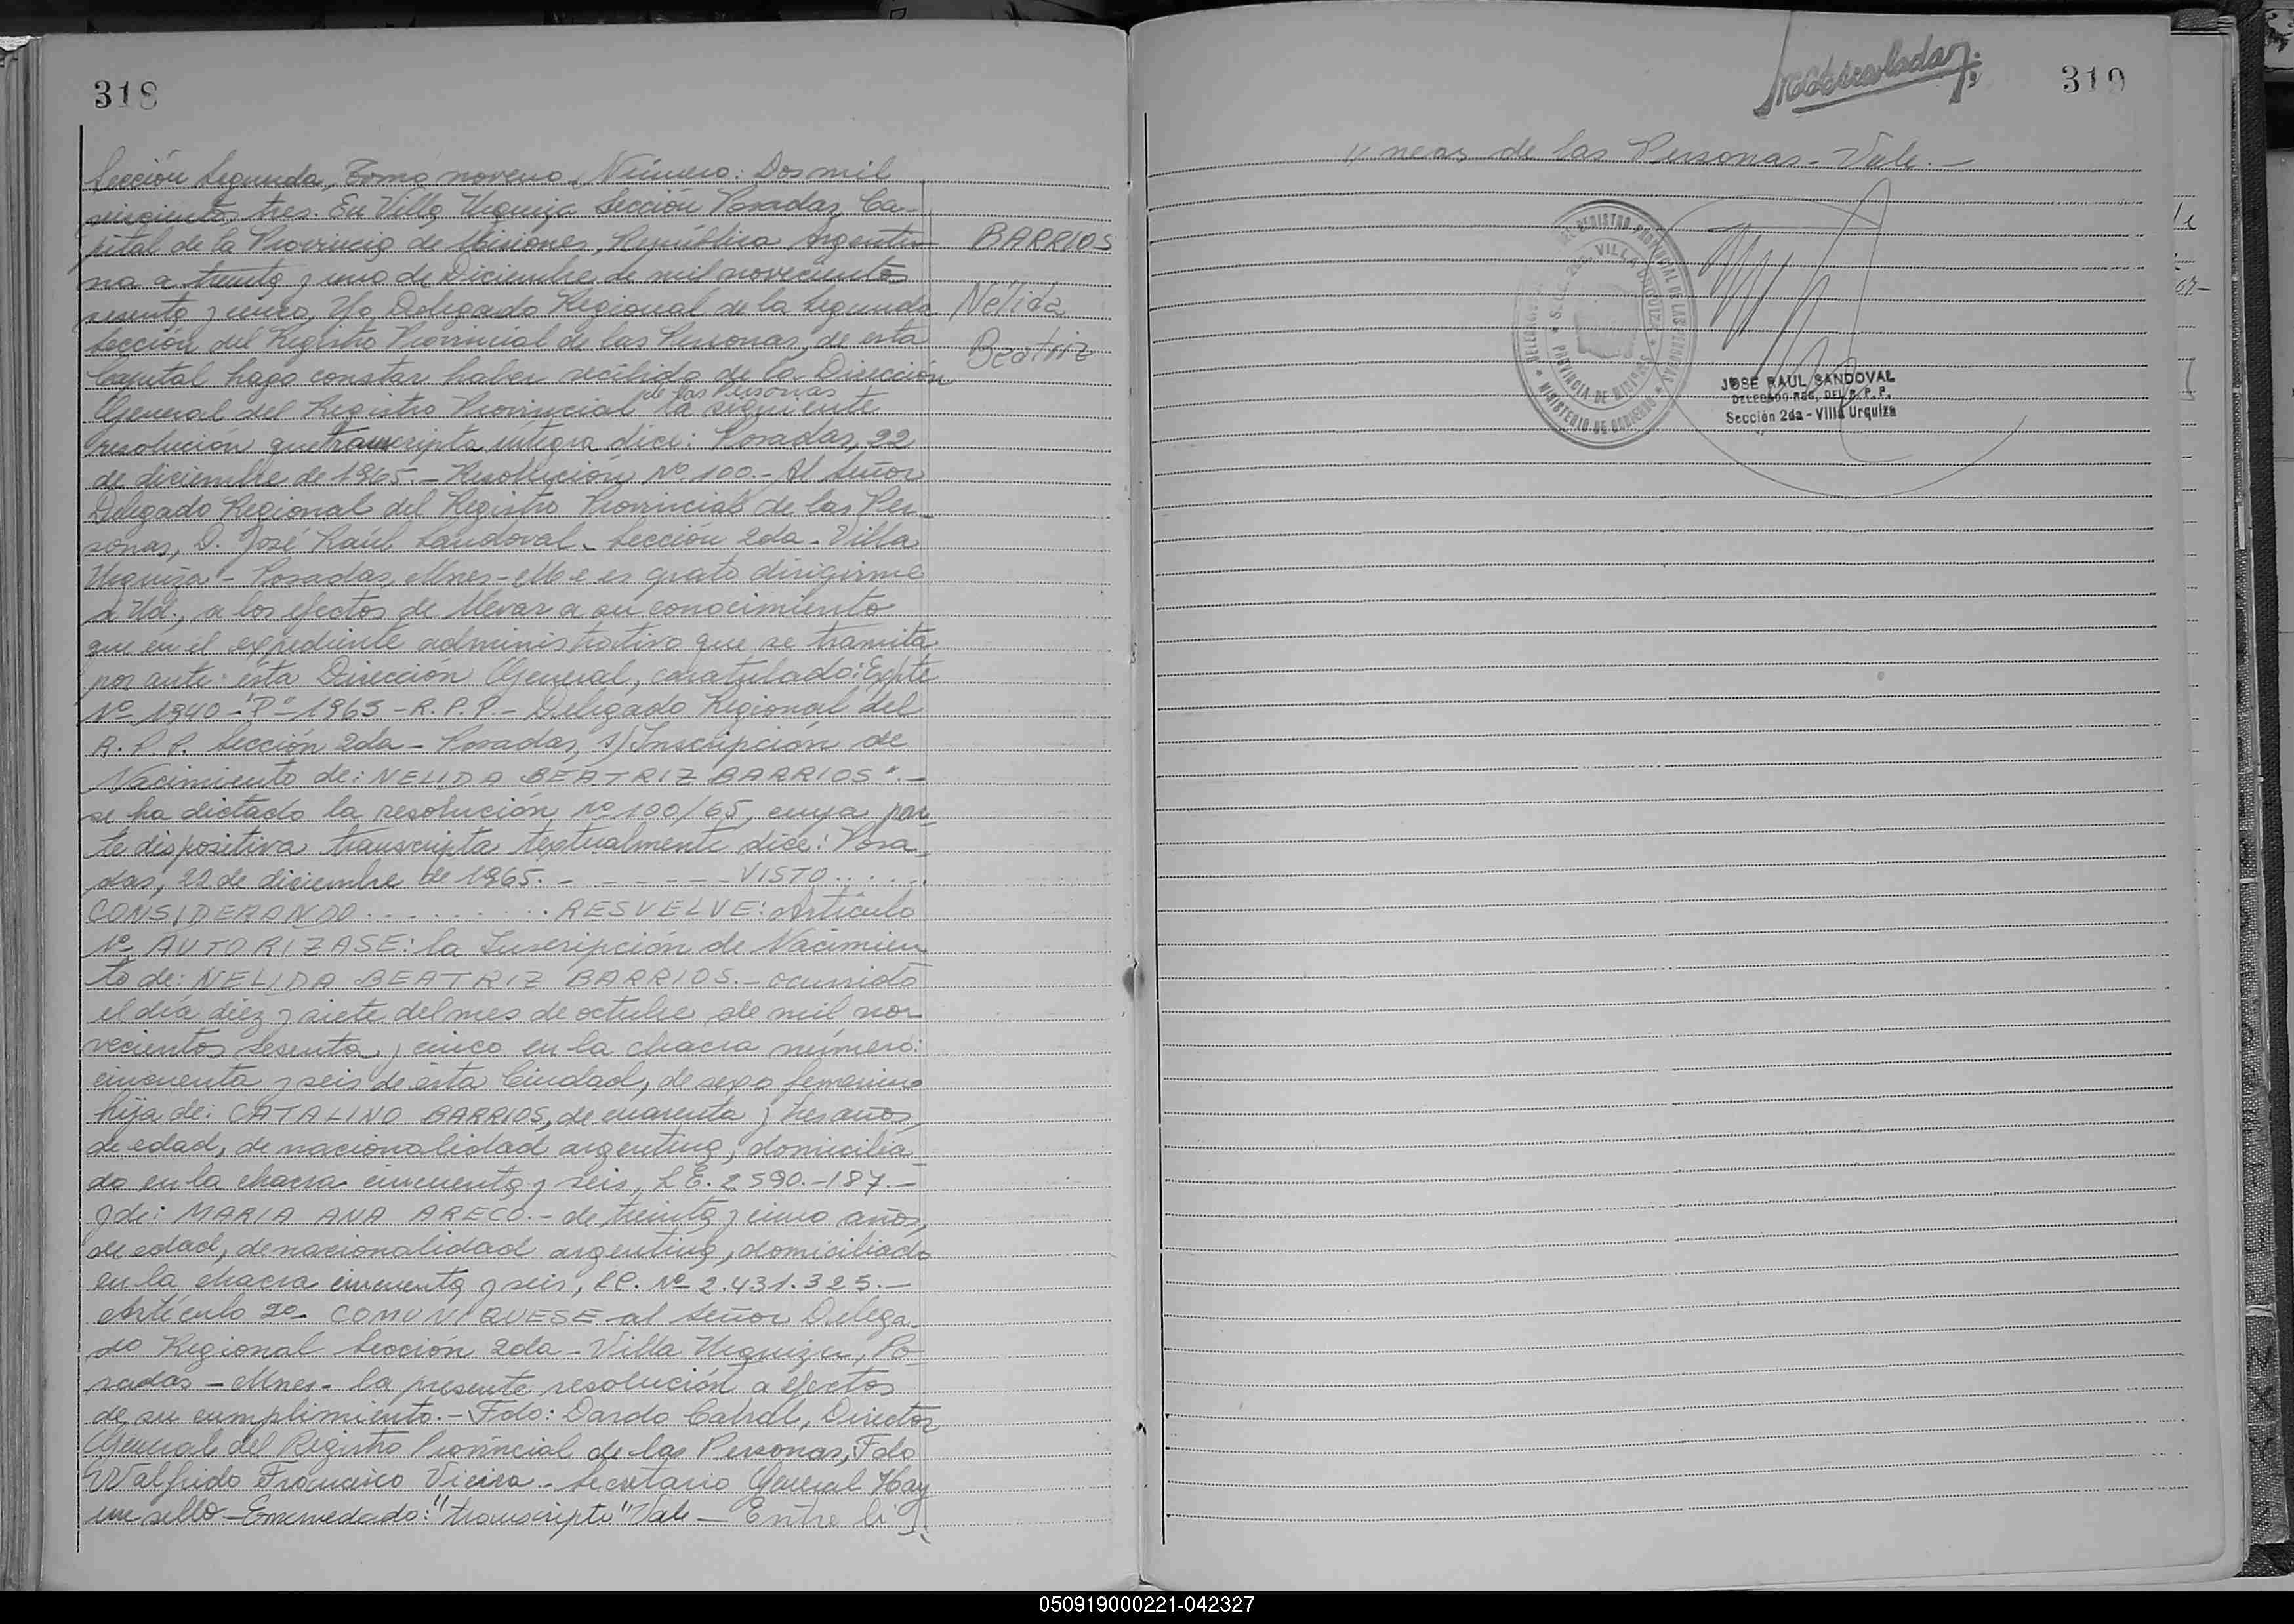 318
Sección Segunda, Tomo noveno. Número: Dos mil
seiscientos tres. En Villa Urquiza Sección Posadas, Ca-
pital de la Provincia de Misiones, República Argenti-
na a treinta y uno de Diciembre de mil novecientos
sesenta y cinco, Yo Delegado Regional de la Segunda
Sección del Registro Provincial de las Personas, de esta
Capital hago constar haber recibido de la Dirección
de las Personas
General del Registro Provincial la siguiente
resolución que transcripta íntegra dice: Posadas, 22
de diciembre de 1965.- Resolución Nº 100.- Al Señor
Delegado Regional del Registro Provincial de las Per-
sonas, D. José Raul Sandoval - Sección 2da - Villa
Urquiza - Posadas, Mnes - Me es grato dirigirme
a Ud., a los efectos de llevar a su conocimiento
que en el expediente administrativo que se tramita
por ante esta Dirección General, caratulado: Expte
Nº 1340 - "P" - 1965 - R.P.P. - Delegado Regional del
R.P.P. Sección 2da - Posadas, s/ Inscripción de
Nacimiento de: NELIDA BEATRIZ BARRIOS".-
se ha dictado la resolución nº 100/65, cuya par-
te dispositiva transcripta textualmente dice: Posa-
das, 22 de diciembre de 1965. - - - - - - VISTO . . . . .
CONSIDERANDO . . . . . . . . . RESUELVE: Artículo
1º AUTORIZASE: la Inscripción de Nacimien-
to de: NELIDA BEATRIZ BARRIOS.- ocurrido
el día diez y siete del mes de octubre de mil no-
vecientos sesenta y cinco en la chacra número:
cincuenta y seis de esta Ciudad, de sexo femenino
hija de: CATALINO BARRIOS, de cuarenta y tres años,
de edad, de nacionalidad argentina, domicilia-
do en la chacra cincuenta y seis, L.E. 2590.-187.-
y de: MARIA ANA ARECO.- de treinta y cinco años,
de edad, de nacionalidad argentina, domiciliada
en la chacra cincuenta y seis, L.C. Nº 2.431.325.-
Artículo 2º- COMUNIQUESE al Señor Delega-
do Regional Sección 2da - Villa Urquiza, Po-
sadas - Mnes - la presente resolución a efectos
de su cumplimiento.- Fdo: Dardo Cabral, Director
General del Registro Provincial de las Personas, Fdo
Walfrido Francisco Vieira - Secretario General Hay
un sello - Enmendado: "transcripta" Vale - Entre lí
BARRIOS
Nélida
Beatriz
319
// neas de las Personas - Vale.-
REGISTRO PROVINCIAL DE LAS PERSONAS
MINISTERIO DE GOBIERNO
PROVINCIA DE MISIONES
VILLA URQUIZA
JOSE RAUL SANDOVAL
DELEGADO REG. DEL R. P. P.
Sección 2da - Villa Urquiza
050919000221-042327